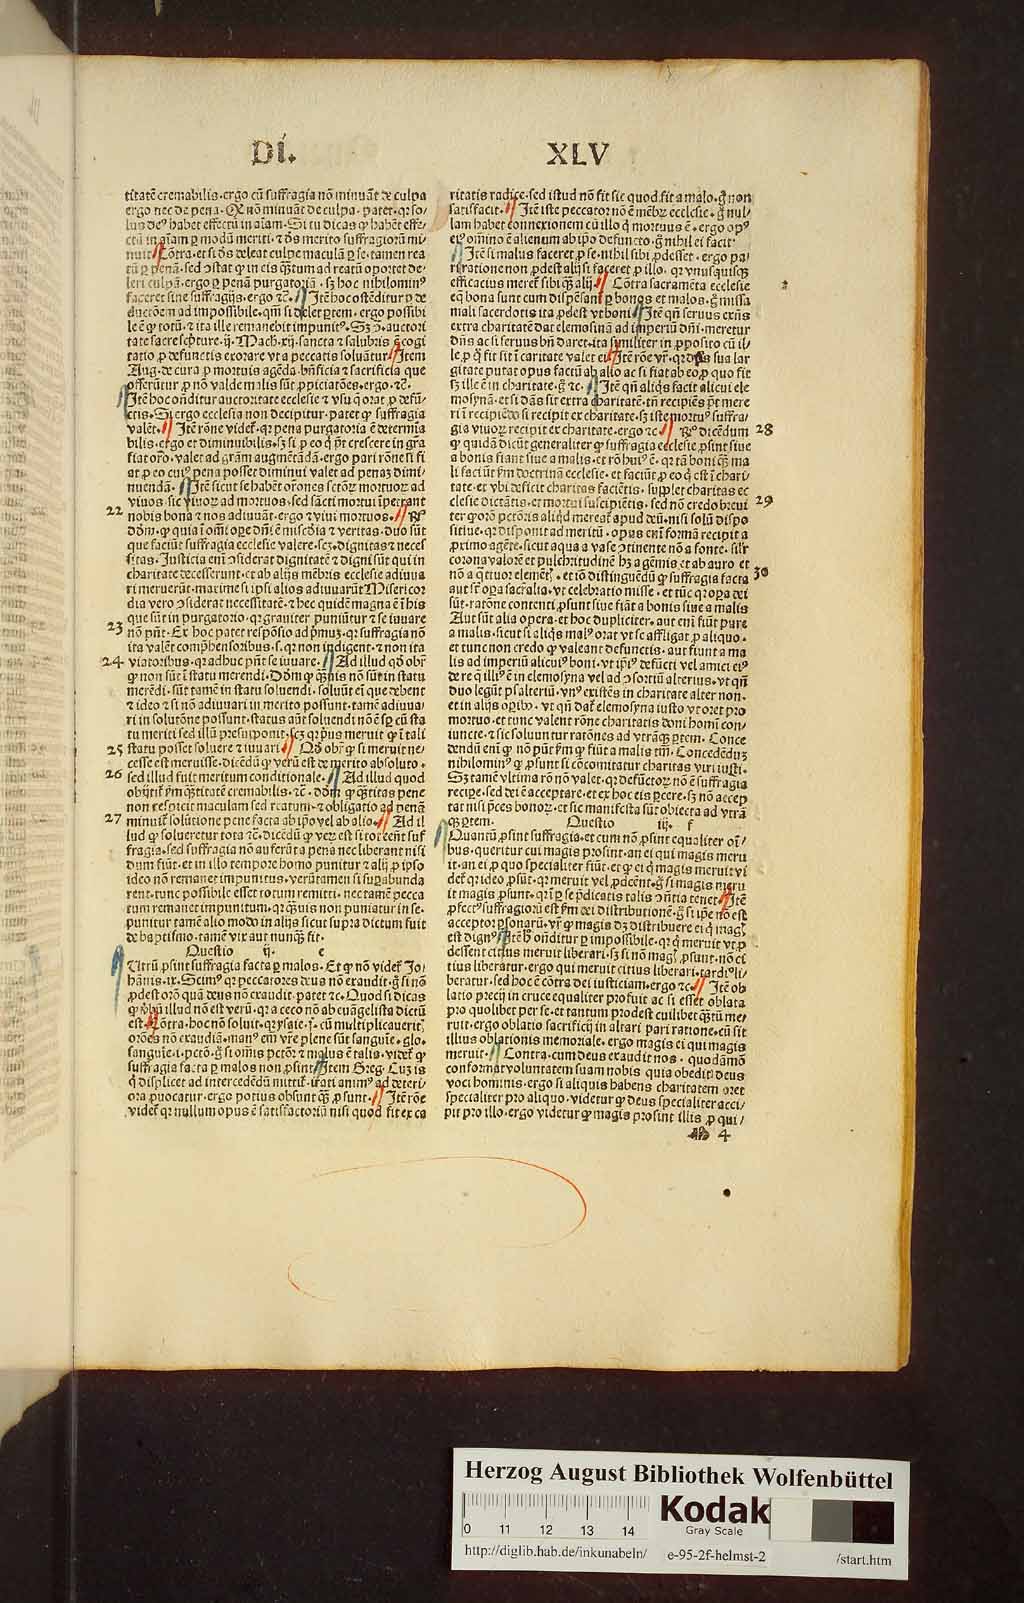 Di. XLV
titatē cremabilis. ergo cū suffragia nō minuāt de culpa
ergo nec de pena. Qꝫ nō minuāt de culpa. patet. qꝛ so/
lus deꝰ habet effectū in aīam. Si tu dicas ꝙ habēt effe/
ctū in aīam ꝑ modū meriti. ⁊ dēs merito suffragioꝝ mi/
nuit. Cōtra. et si deleat culpe maculā ꝑ se. tamen rea
tū ꝑ penā. sed ↄstat ꝙ in eis ad reatū oportet de/
leri culpā. ergo ꝑ penā purgatoriā. sꝫ hoc nihilominꝰ
faceret sine suffragijs. ergo ⁊c. Itē hoc ostēditur ꝑ de
ductōem ad impossibile. qm̄ si delet ꝑtem. ergo possibi
le ē ꝙ totū. ⁊ ita ille remanebit impunitꝰ. auctori
tate sacre scpture. ij. Mach. xij. sancta ⁊ salubris ē cogi
tatio ꝓ defunctis exorare vt a peccatis soluātur. Item
Aug. de cura ꝓ mortuis agēda. bn̄ficia ⁊ sacrificia que
offerūtur ꝓ nō valde malis sūt ꝓpiciatōes. ergo. ⁊c.
Itē hoc ondītur auctoritate ecclesie ⁊ vsu q̄ orat ꝓ defū/
ctis. Si ergo ecclesia non decipitur. patet ꝙ suffragia
valēt. Itē rōne videt. qꝛ pena purgatoria ē determīa
bilis. ergo et diminuibilis. sꝫ si ꝑ eo ꝙ pōt crescere in grā
valet ad gram augmētādā. ergo pari rōne si fi
at ꝑ eo cuiꝰ pena posset diminui valet ad penaꝫ dimi/
nuendā. Itē sicut se habēt orōnes sctōꝝ mortuoꝝ ad
viuos. sic viuoꝝ ad mortuos. sed sācti mortui īpetrant
22 nobis bona ⁊ nos adiuuāt. ergo ⁊ viui mortuos. Rͦ
dōm. ꝙ quia ī om̄i oꝑe dn̄i ē misc̄dia ⁊ veritas. duo sūt
que faciūt suffragia ecclesie valere. scꝫ. dignitas ⁊ neces
sitas. Iusticia enī ↄsiderat dignitatē ⁊ digni sūt qui in
charitate decesserunt. et ab alijs mēbris ecclesie adiuua
ri meruerūt. maxime si ipsi alios adiuuarūt Misericor
dia vero ↄsiderat necessitatē. ⁊ hec quidē magna ē ī his
que sūt in purgatorio. qꝛ grauiter puniūtur ⁊ se iuuare
23 nō pn̄t. Ex hoc patet respōsio ad pmuꝫ. qꝛ suffragia nō
ita valēt comphensoribus. s. qꝛ non indigent. ⁊ non ita
24 viatoribus. qꝛ adhuc pn̄t se iuuare. Ad illud qd̄ obr̄
ꝙ non sūt ī statu merendi. Dōm ꝙ nō sūt in statu
merēdi. sūt tamē in statu soluendi. soluūt eī que debent
⁊ ideo ⁊ si nō adiuuari in merito possunt. tamē adiuua/
ri in solutōne possunt. status aūt soluendi nō ē sꝫ cū sta
tu meriti sed illū presupponit. scꝫ qꝛ pus meruit ꝙ ī tali
25 statu posset soluere ⁊ iuuari. Qd̄ obr̄ ꝙ si meruit ne/
cesse est meruisse. dicēdū ꝙ verū est de merito absoluto.
26 sed illud fuit meritum conditionale. Ad illud quod
titatē cremabilis. ⁊c. dōm ꝙ pene
non respicit maculam sed reatum. ⁊ obligatio ad penā
27 minuit̄ solutione pene facta ab ipo vel ab alio. Ad il/
lud ꝙ solueretur tota ⁊c. dicēdū ꝙ veꝝ est si tot eēnt suf
fragia. sed suffragia nō auferūt a pena nec liberant nisi
dum fiūt. et in illo tempore homo punitur ⁊ alij ꝓ ipso
ideo nō remanet impunitus. verūtamen si suꝑabunda
rent. tunc possibile esset totum remitti. nec tamē pecca
tum remanet impunitum. qꝛ quis non puniatur in se.
punitur tamē alio modo in alijs sicut supra dictum fuit
de baptismo. tamē vix aut nunqꝫ fit.
Questio ij. e
Utrū prosint suffragia facta ꝑ malos. Et ꝙ nō videt Jo/
hānis. ix. Scimꝰ qꝛ peccatores deus nō exaudit. ḡ si nō
prodest orō quā deus nō exaudit. patet ⁊c. Quod si dicas
ꝙ illud nō est verū. qꝛ a ceco nō ab euāgelista dictū
est. Cōtra. hoc nō soluit. qꝛ ysaie. j. cū multiplicauerit
orōes nō exaudiā. manꝰ em̄ vre plene sūt sanguīe. glo.
sanguīe. i. petō. ḡ si om̄is petōꝝ ⁊ malus ē talis. videt ꝙ
suffragia facta ꝑ malos non prosint. Item Greg. Cuꝫ is
q̄ displicet ad intercedēdū mittit. irati animꝰ ad deteri/
ora ꝓuocatur. ergo potius obsunt qꝫ prosunt. Itē rōne
videt. qꝛ nullum opus ē satisfactoriū nisi quod fit ex ca
ritatis radice. sed istud nō fit sic quod fit a malo. ḡ non
satisfacit. Itē iste peccator nō ē mēbꝝ ecclesie. ḡ nul/
lam habet connexionem cū illo q̄ mortuus ē. ergo opꝰ
eiꝰ om̄ino ē alienum ab ipo defuncto. ḡ nihil ei facit.
Itē si malus faceret ꝓ se. nihil sibi ꝓdesset. ergo pa/
ri ratione non ꝓdest alij si faceret ꝓ illo. qꝛ vnusquisqꝫ
efficacius meret sibi alij. Cōtra sacramēta ecclesie
eq̄ bona sunt cum dispēsant ꝑ bonos et malos. ḡ missa
mali sacerdotis ita ꝓdest vt boni. Itē qn̄ seruus exn̄s
extra charitatē dat elemosinā ad imperiū dn̄i. meretur
dn̄s ac si seruus bn̄ daret. ita similiter in ꝓposito cū il/
le ꝓ q̄ fit sit ī caritate valet ei. Itē rōe vr̄. qꝛ sua lar
gitate putat opus factū ab alio ac si fiat ab eo ꝓ quo fit
sꝫ ille ē in charitate. ḡ ⁊c. Itē qn̄ aliqs facit alicui ele
mosynā. et si dās sit extra charitatē. tn̄ recipiēs pōt mere
ri ī recipiēdo si recipit ex charitate. sꝫ iste mortuꝰ suffra/
gia viuoꝝ recipit ex charitate. ergo ⁊c. Rͦ dicēdum 28
ꝙ quidā dicūt generaliter ꝙ suffragia ecclesie prosint siue
a bonis fiant siue a malis. et rō huiꝰ ē. qꝛ tā boni qꝫ ma
li faciūt fm doctrinā ecclesie. et faciūt ꝓ eo q̄ est ī chari/
tate. et vbi deficit charitas faciētis. supplet charitas ec
clesie dictātis. et mortui suscipiētis. sed nō credo breui 29
ter ꝙ orō petōris aliqd mereat apud deū. nisi solū dispo
sitiue. qꝛ disponit ad meritū. opus enī formā recipit a
primo agēte. sicut aqua a vase ↄtinente nō a fonte. silr̄
corona valorē et pulchritudinē hꝫ a gēmis. et ab auro et
nō a qttuor elemēt. et iō distinguēdū ꝙ suffragia facta 30
aut st̄ oꝑa sacralia. vt celebratio misse. et tūc qꝛ oꝑa dei
sūt. ratōne contenti prosunt siue fiāt a bonis siue a malis
Aut sūt alia opera. et hoc dupliciter. aut enī fiūt pure
a malis. sicut si aliqs malꝰ orat vt se affligat ꝓ aliquo.
et tunc non credo ꝙ valeant defunctis. aut fiunt a ma
lis ad imperiū alicuiꝰ boni. vt ipiꝰ defūcti vel amici eiꝰ
de re q̄ illiꝰ ē in elemosyna vel ad ↄsortiū alterius. vt qn̄
duo legūt psalteriū. vnꝰ existēs in charitate alter non.
et in alijs oꝑibꝰ. vt qn̄ dat elemosyna iusto vt oret pro
mortuo. et tunc valent rōne charitatis boni homī con/
iuncte. ⁊ sic soluuntur ratōnes ad vtrāqꝫ ꝑtem. Conce
dendū enī ꝙ nō pūt fm ꝙ fiūt a malis tm̄. Concedēduꝫ
nihilominꝰ ꝙ prosunt si cōcomitatur charitas viri iusti.
Sꝫ tamē vltima rō nō valet. qꝛ defūctoꝝ nō ē suffragia
recipe. sed dei ē acceptare. et ex hoc eis ꝑcere. sꝫ nō accep
tat nisi pces bonoꝝ. et sic manifesta sūt obiecta ad vtrā
qꝫ ꝑtem. Questio iij. f
Quantū prosint suffragia. et cum nō prosint equaliter oī/
bus. queritur cui magis prosint. an ei qui magis meru
it. an ei ꝓ quo specialiter fiūt. et ꝙ ei q̄ magis meruit vi
det. qꝛ ideo prosūt. qꝛ meruit vel ꝓdeēnt. ḡ si magis meru
it magis prosunt. qꝛ ī ꝑ se pdicatis talis ↄn̄tia tenet. Itē
ꝓfectꝰ suffragioꝝ est fm dei distributionē. ḡ si ipe nō est
acceptor ꝑsonarū. vr̄ ꝙ magis dꝫ distribuere ei q̄ magꝭ
est dignꝰ. Itē h̄ ōnditur ꝑ impossibile. qꝛ q̄ meruit vt ꝓ
dessent citius meruit liberari. sꝫ si nō magꝭ prosunt. nō ci
tius liberatur. ergo qui meruit citius liberari. tardiꝰ li/
beratur. sed hoc ē cōtra dei iusticiam. ergo ⁊c. Itē ob
latio precij in cruce equaliter profuit ac si esset oblata
pro quolibet per se. et tantum prodest cuilibet qꝫtū me/
ruit. ergo oblatio sacrificij in altari pari ratione. cū sit
illius oblationis memoriale. ergo magis ei qui magis
meruit. Contra. cum deus exaudit nos. quodāmō
conformat voluntatem suam nobis quia obedit deus
voci hominis. ergo si aliquis habens charitatem oret
specialiter pro aliquo. videtur ꝙ deus specialiter acci/
pit pro illo. ergo videtur ꝙ magis prosint illis ꝓ qui/
4
Herzog August Bibliothek Wolfenbüttel
0 11 12 13 14
Kodak
Gray Scale
http://diglib.hab.de/inkunabeln/ e-95-2f-helmst-2 /start.htm